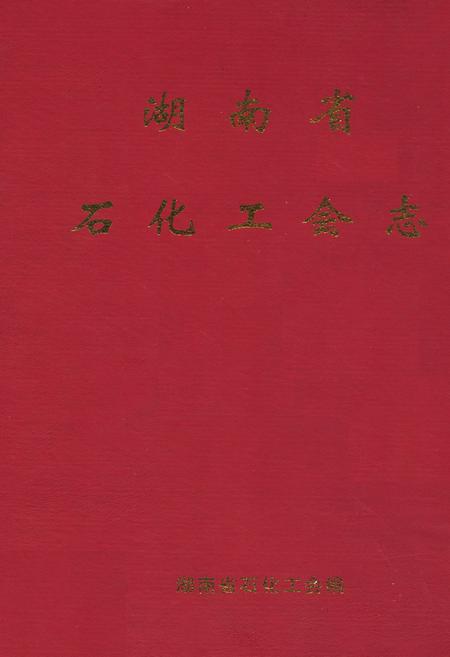 湖南省
石化工会志
湖南省石化工会编